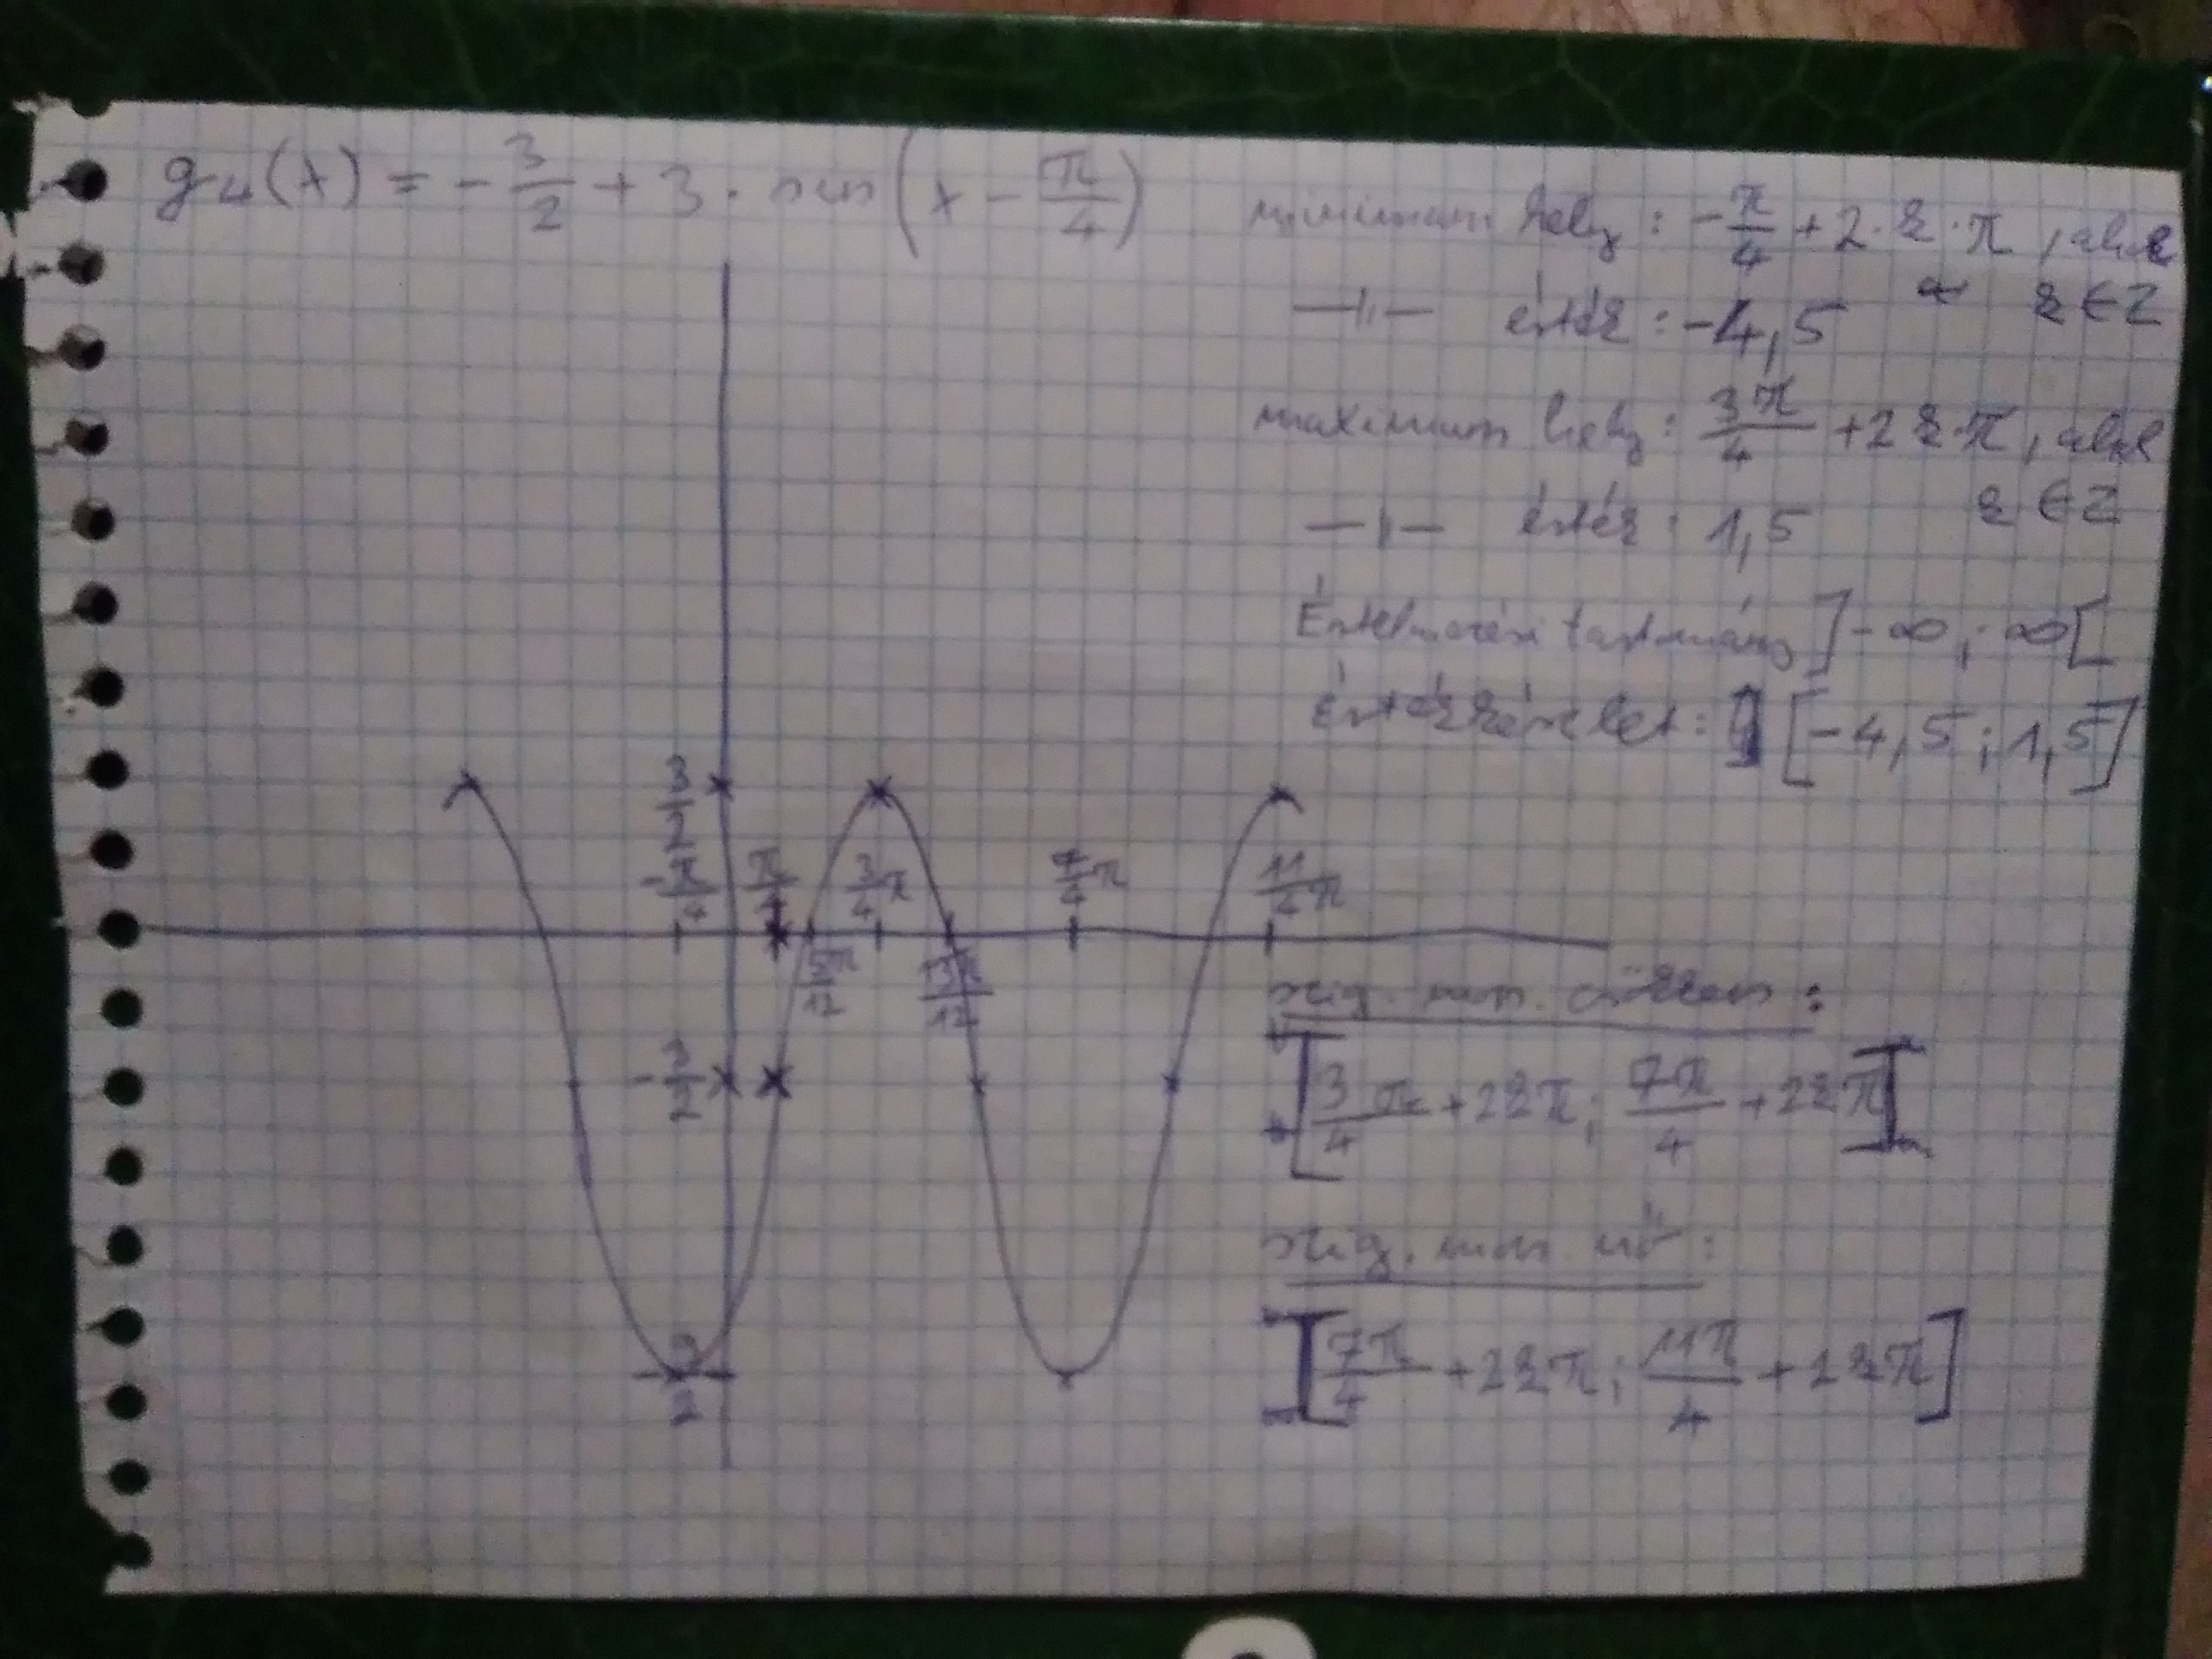 g₄(x) = -3/2 + 3 · sin(x - π/4)
minimum hely: -π/4 + 2·k·π, ahol
k ∈ Z
—||— érték: -4,5
maximum hely: 3π/4 + 2kπ, ahol
k ∈ Z
—||— érték: 1,5
Értelmezési tartomány ]-∞; ∞[
értékkészlet: [-4,5; 1,5]
3/2
-π/4 π/4 3/4π 7/4π 11/4π
5π/12 13π/12
-3/2
9/2
szig. mon. csökken:
[3/4π + 2kπ; 7π/4 + 2kπ]
szig. mon. nő:
[7π/4 + 2kπ; 11π/4 + 2kπ]